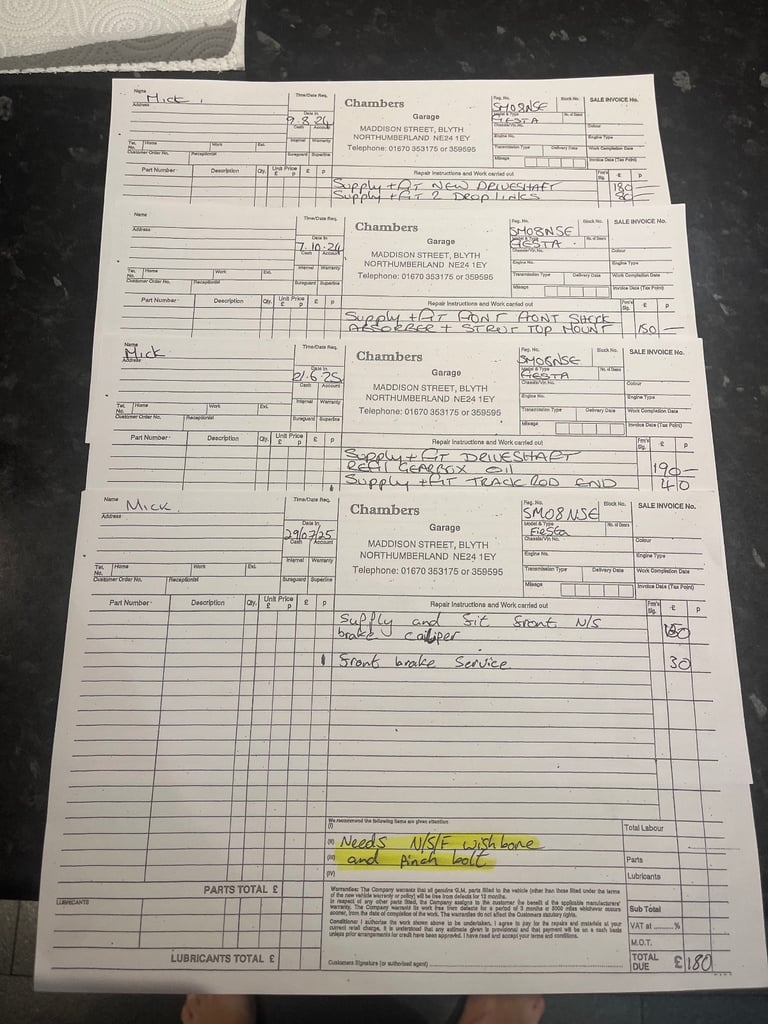 Name
Mick.
Address
Time/Date Req.
Date In
9.8.24
Cash Account
Internal Warranty
Sureguard Superline
Tel. No. Home Work Ext.
Customer Order No. Receptionist
Chambers
Garage
MADDISON STREET, BLYTH
NORTHUMBERLAND NE24 1EY
Telephone: 01670 353175 or 359595
Reg. No.
SM08NSE
Model & Type
FIESTA
Stock No.
No. of Doors
Chassis/Vin. No.
Engine No.
Transmission Type Delivery Date
Mileage
SALE INVOICE No.
Colour
Engine Type
Work Completion Date
Invoice Date (Tax Point)
Part Number Description Qty. Unit Price £ p £ p
Repair Instructions and Work carried out £ p
Supply + Fit NEW DRIVESHAFT 180 —
Supply + Fit 2 DROP LINKS
Name
Address
Time/Date Req.
Date In
7.10.24
Cash Account
Internal Warranty
Sureguard Superline
Tel. No. Home Work Ext.
Customer Order No. Receptionist
Chambers
Garage
MADDISON STREET, BLYTH
NORTHUMBERLAND NE24 1EY
Telephone: 01670 353175 or 359595
Reg. No.
SM08NSE
Model & Type
FIESTA
Stock No.
No. of Doors
Chassis/Vin. No.
Engine No.
Transmission Type Delivery Date
Mileage
SALE INVOICE No.
Colour
Engine Type
Work Completion Date
Invoice Date (Tax Point)
Part Number Description Qty. Unit Price £ p £ p
Repair Instructions and Work carried out £ p
Supply + Fit FRONT FRONT SHOCK
ABSORBER + STRUT TOP MOUNT 150 —
Name
Mick
Address
Time/Date Req.
Date In
21.6.25
Cash Account
Internal Warranty
Sureguard Superline
Tel. No. Home Work Ext.
Customer Order No. Receptionist
Chambers
Garage
MADDISON STREET, BLYTH
NORTHUMBERLAND NE24 1EY
Telephone: 01670 353175 or 359595
Reg. No.
SM08NSE
Model & Type
FIESTA
Stock No.
No. of Doors
Chassis/Vin. No.
Engine No.
Transmission Type Delivery Date
Mileage
SALE INVOICE No.
Colour
Engine Type
Work Completion Date
Invoice Date (Tax Point)
Part Number Description Qty. Unit Price £ p £ p
Repair Instructions and Work carried out £ p
Supply + Fit DRIVESHAFT
REFIL GEARBOX OIL 190 —
Supply + Fit TRACK ROD END 40
Name
Mick.
Address
Time/Date Req.
Date In
29/07/25
Cash Account
Internal Warranty
Sureguard Superline
Tel. No. Home Work Ext.
Customer Order No. Receptionist
Chambers
Garage
MADDISON STREET, BLYTH
NORTHUMBERLAND NE24 1EY
Telephone: 01670 353175 or 359595
Reg. No.
SM08NSE
Model & Type
Fiesta
Stock No.
No. of Doors
Chassis/Vin. No.
Engine No.
Transmission Type Delivery Date
Mileage
SALE INVOICE No.
Colour
Engine Type
Work Completion Date
Invoice Date (Tax Point)
Part Number Description Qty. Unit Price £ p £ p
Repair Instructions and Work carried out £ p
Supply and fit front N/S
brake caliper 150
1 front brake service 30
We recommend the following items are given attention
(I)
(II) Needs N/S/F wishbone
(III) and Pinch bolt
(IV)
Total Labour
Parts
Lubricants
Sub Total
VAT at ........%
M.O.T.
TOTAL DUE £180
PARTS TOTAL £
LUBRICANTS
LUBRICANTS TOTAL £
Warranties: The Company warrants that all genuine G.M. parts fitted to the vehicle (other than those fitted under the terms
of the new vehicle warranty or policy) will be free from defects for 12 months.
In respect of any other parts fitted, the Company assigns to the customer the benefit of the applicable manufacturers'
warranty. The Company warrants its work free from defects for a period of 3 months or 3000 miles whichever occurs
sooner, from the date of completion of the work. The warranties do not affect the Customers statutory rights.
Conditions: I authorise the work shown above to be undertaken. I agree to pay for the repairs and materials at your
current retail charge, it is understood that any estimate given is provisional and that payment will be on a cash basis
unless prior arrangements for credit have been approved. I have read and accept your terms and conditions.
Customers Signature (or authorised agent)